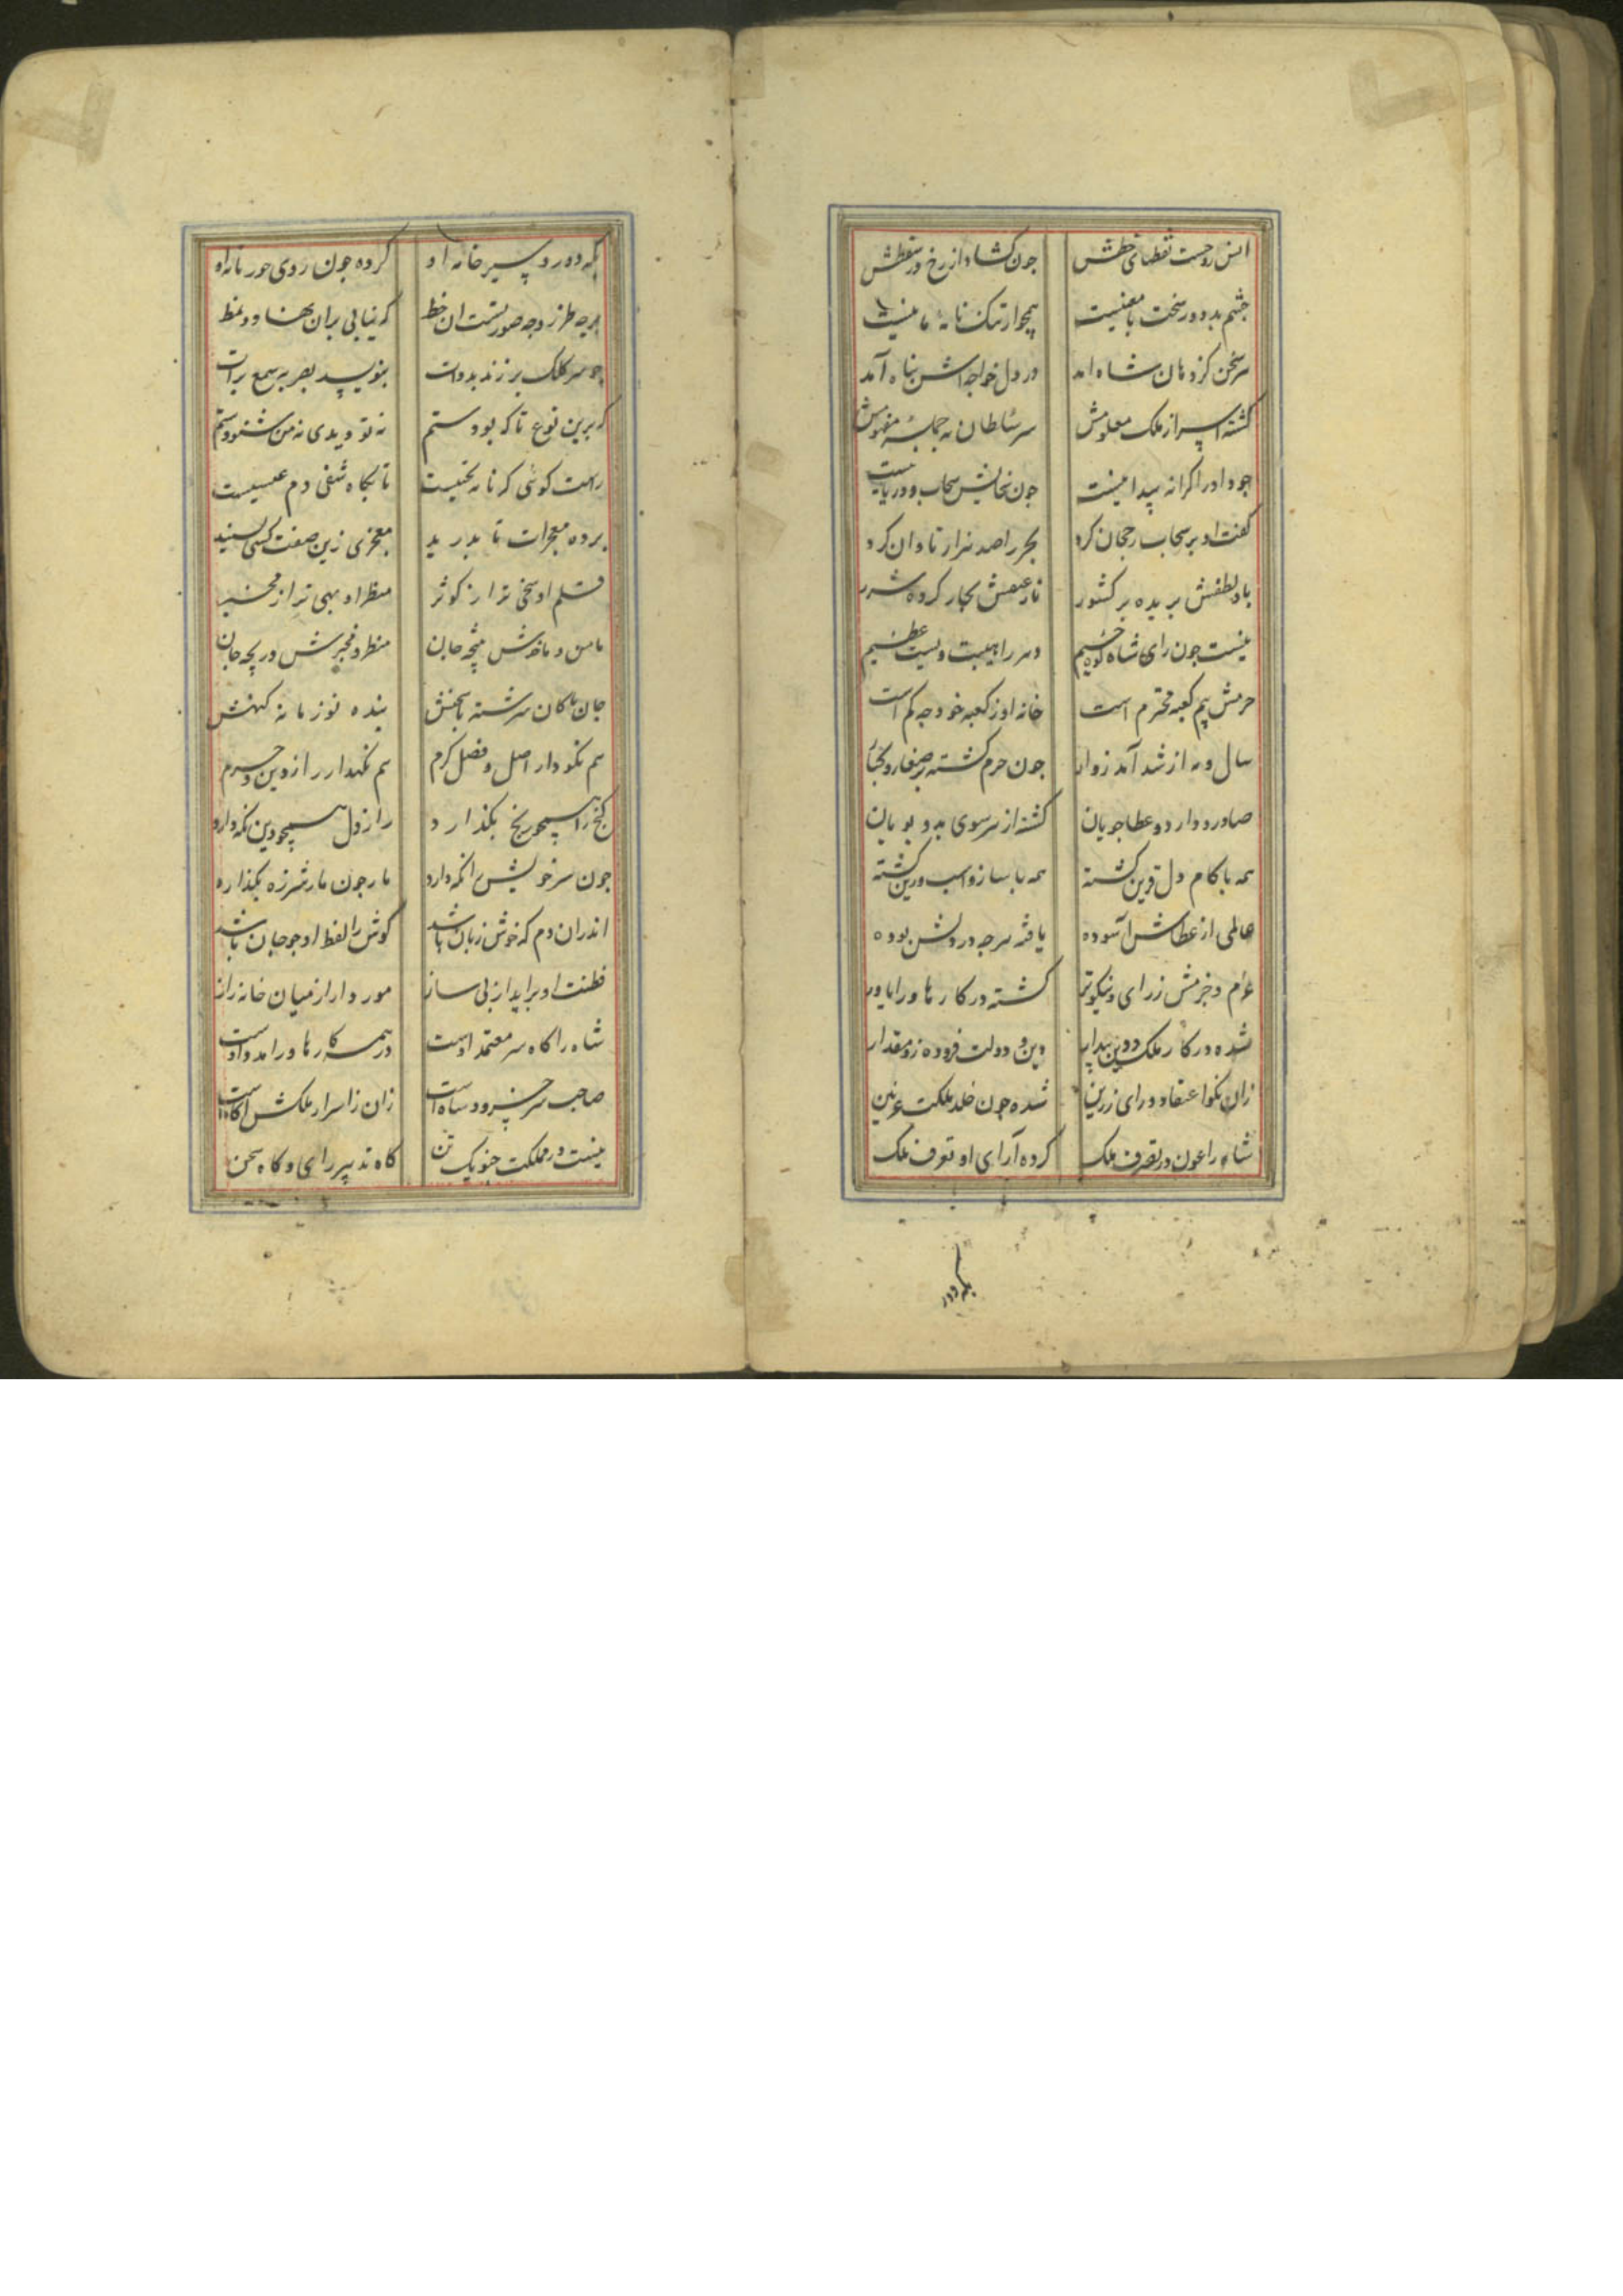 انس روحست نقطهای خطش جون کشاد از رخ در سقطش
جشم بد دور سخت با معنیست همجو ارتنک نامهٔ مانیست
هر سخن کز دهان شاه امد در دل خواجه‌اش بناه آمد
کشته اسرار ملک معلومش سر سلطان به جمله مفهومش
جود او را کرانه پیدا نیست جون سخایش سحاب و دریا نیست
کفت او بر سحاب رجحان کرد بحر را صد هزار تاوان کرد
باد لطفش بریده بر کشور نار عنفش بحار کرده شرر
نیست جون رای شاه کوه حشیم دهر را هیبت ویست عظیم
حرمش هم کعبه محترم است خانه او ز کعبه خود جه کم است
سال و مه از شد آمد زوار جون حرم کشته بر صغار و کبار
صادر و وارد و عطا جویان کشته از هر سوی بدو بویان
همه با کام دل قرین کشته همه با ساز و اسب و زین کشته
عالمی از عطاش آسوده یافته هرجه در دلش بوده
عزم و حزمش ز رای و نیکوتر کشته در کارها ورا یاور
شده در کار ملک و دین بیدار دین و دولت فزوده زو مقدار
زان نکو اعتقاد و رای زرین شده جون خلد مملکت غزنین
شاه را عون در تصرف ملک کرده آرای او تعرف ملک
بکه دور
بکه دور دبیر خانه او کرده جون روی حور نامه او
هرجه طرز و جه صورتست ان خط که نیابی بران نهاد و نمط
جو سر کلک بر زند بدوات بنویسد بصر بر سمع برات
که برین نوع تا که بود ستم نه تو دیدی نه من شنودستم
راست کوئی که نامه تختیست تا بکاه شفی دم عیسیست
برده معجزات تا بدرید معجزی زین صفت کسی نشنید
قلم او سخی تر از کوثر منظر او بهی تر از مخبر
مامن و مانش مهجه جان منظر و مخبرش دریجه جان
جان باکان سرشته با سخنش بنده نو زمانه کهنش
هم نکو دار اصل و فضل کرم هم نکهدار راز دین و حرم
کنج را همجو رنج بکذارد راز دل همجو دین نکه دارد
جون سر خویش را نکه دارد مار جون مار شرزه بکذارد
اندران دم که خوش زبان باشد کوش را لفظ او جو جان باشد
فطنت او برآید از بی ساز مور وار از میان خانه راز
شاه را کاه سر معتمد اوست در همه کارها ورا مدد اوست
صاحب سر خسرو و شاه است زان ز اسرار ملکش اکاه است
نیست در مملکت جنو یک تن کاه تدبیر رای و کاه سخن